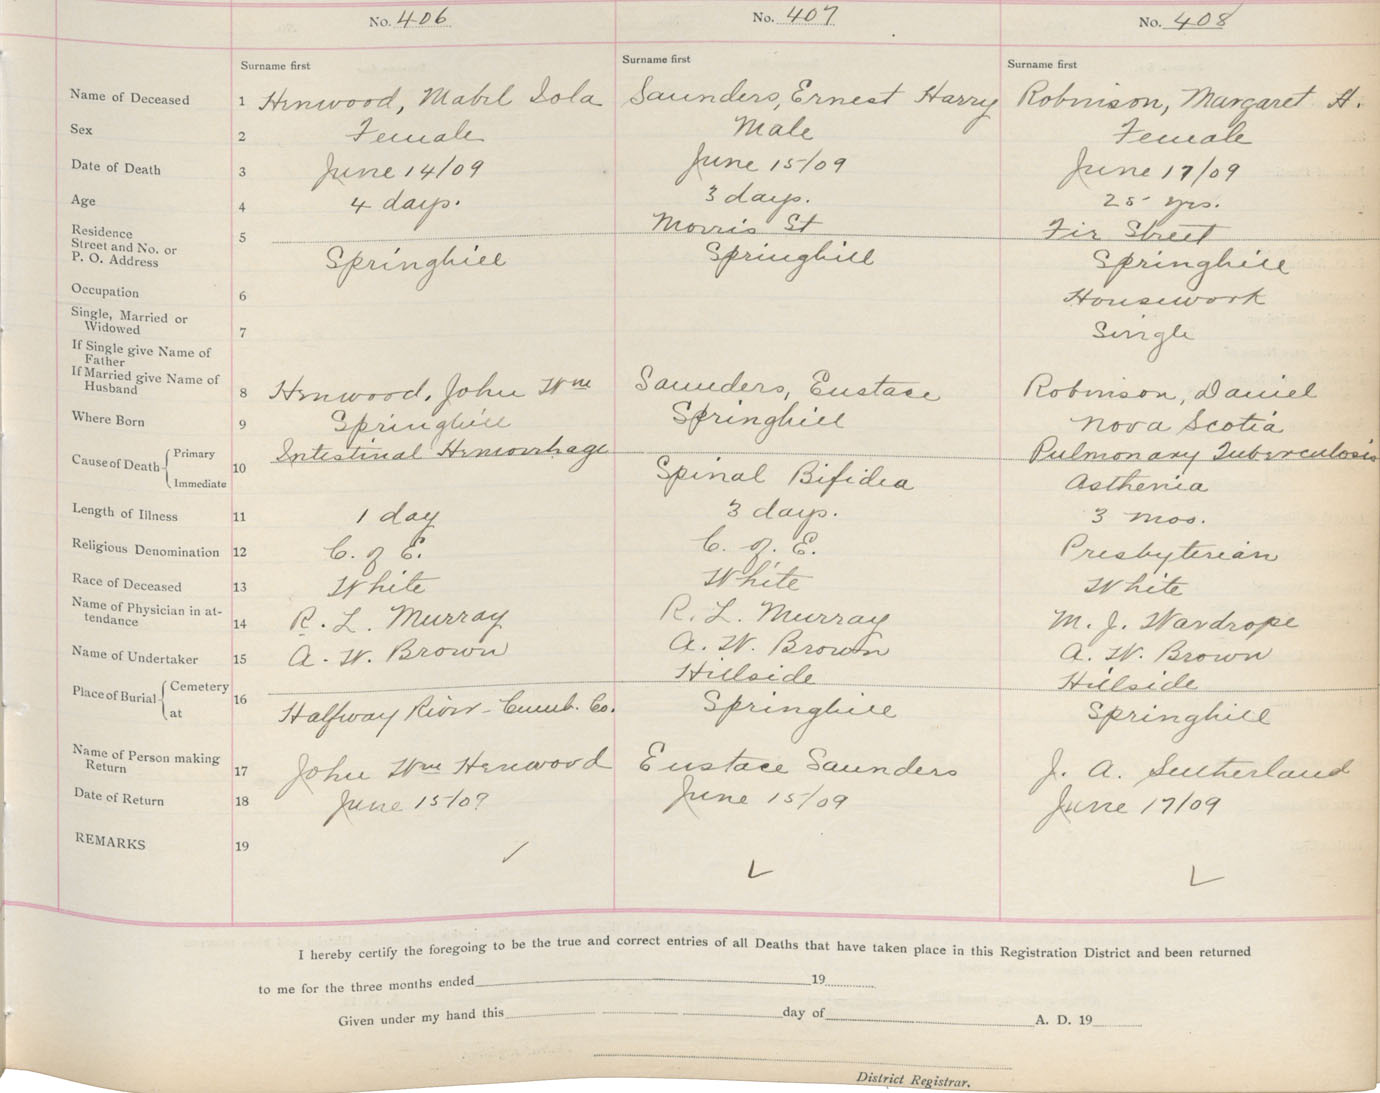 No. 406 No. 407 No. 408
Surname first Surname first Surname first
Name of Deceased 1 Henwood, Mabel Iola Saunders, Ernest Harry Robinson, Margaret H.
Sex 2 Female Male Female
Date of Death 3 June 14/09 June 15/09 June 17/09
Age 4 4 days. 3 days. 25 yrs.
Residence 5 Morris St Fir Street
Street and No. or
P. O. Address Springhill Springhill Springhill
Occupation 6 Housework
Single, Married or
Widowed 7 Single
If Single give Name of
Father
If Married give Name of
Husband 8 Henwood, John Wm Saunders, Eustace Robinson, Daniel
Where Born 9 Springhill Springhill Nova Scotia
Cause of Death Primary 10 Intestinal Hemorrhage Pulmonary Tuberculosis
Immediate Spinal Bifidea Asthenia
Length of Illness 11 1 day 3 days. 3 mos.
Religious Denomination 12 C. of E. C. of E. Presbyterian
Race of Deceased 13 White White White
Name of Physician in at-
tendance 14 R. L. Murray R. L. Murray M. J. Wardrope
Name of Undertaker 15 A. W. Brown A. W. Brown A. W. Brown
Place of Burial Cemetery 16 Hillside Hillside
at Halfway River - Cumb. Co. Springhill Springhill
Name of Person making
Return 17 John Wm Henwood Eustace Saunders J. A. Sutherland
Date of Return 18 June 15/09 June 15/09 June 17/09
REMARKS 19
I hereby certify the foregoing to be the true and correct entries of all Deaths that have taken place in this Registration District and been returned
to me for the three months ended 19
Given under my hand this day of A. D. 19
District Registrar.